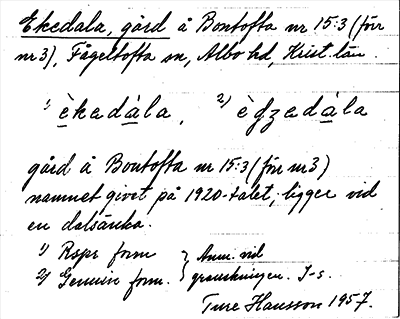 Ekedala, gård å Bontofta nr 15:3 (förr
nr 3), Fågeltofta sn, Albo hd, Krist. län.
1) èkadàla, 2) èʒadàla
gård å Bontofta nr 15:3 (förr nr 3)
namnet givet på 1920-talet; ligger vid
en dalsänka.
1) Rspr form } Anm. vid
2) Genuin form. } granskningen. I-s.
Ture Hansson 1957.